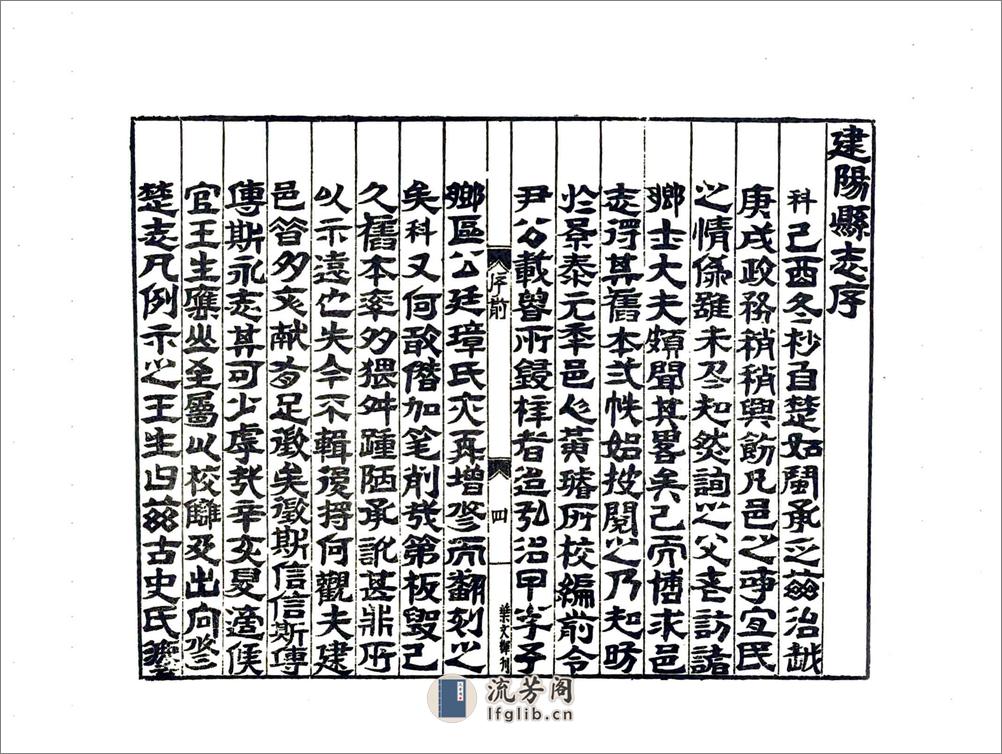 建陽縣志序
科己酉冬杪自楚如閩承乏茲治越
庚戌政務稍稍興飭凡邑之事宜民
之情係雖未盡知然詢之父老訪諸
鄉士大夫頗聞其畧矣已而博求邑
志得其舊本弍帙始披閱之乃知昉
於景泰元季邑人黃璿所校編前令
尹公載曾所鋟梓者迨弘治甲子
序前
四
葉文輝刊
鄉區公廷璋氏亦再增修而翻刻之
矣科又何敢僭加笔削哉第板毀已
久舊本率多猥舛踵陋承訛甚非所
以示遠也失今不輯後將何觀夫建
邑昝多文献足徵矣徵斯信信斯傳
傳斯永志其可少虖哉辛亥夏適侯
官王生應山至屬以校讎及出向修
楚志凡例示之王生曰茲古史氏
流芳阁
lfglib.cn